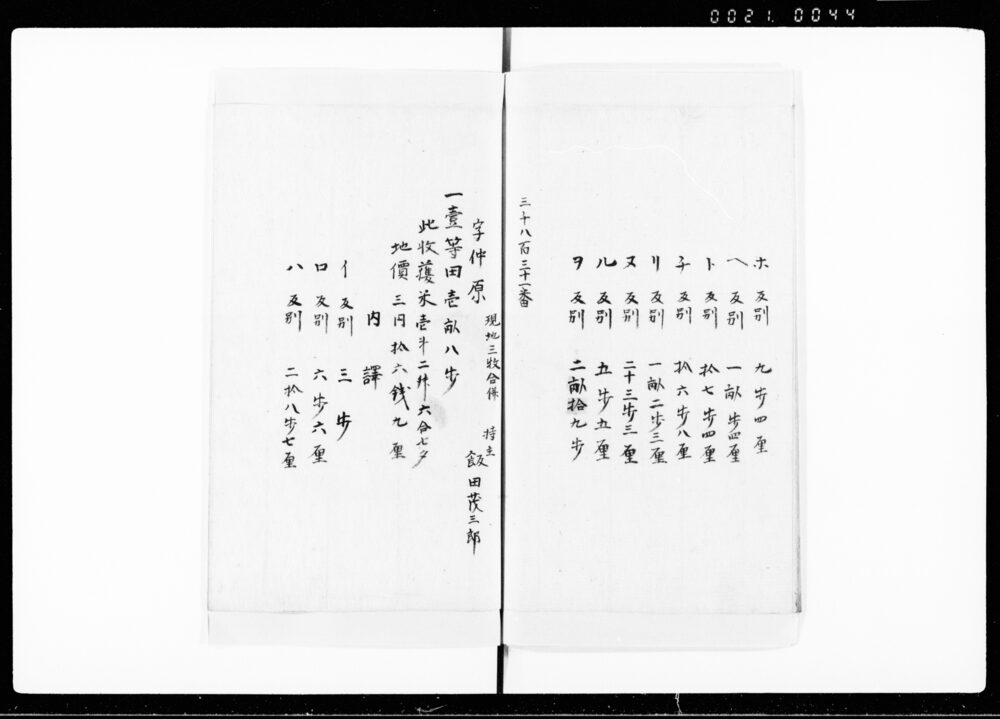 0021.0044
ホ 反別 九歩四厘
ヘ 反別 一畝歩四厘
ト 反別 拾七歩四厘
チ 反別 拾六歩八厘
リ 反別 一畝二歩三厘
ヌ 反別 二十三歩三厘
ル 反別 五歩五厘
ヲ 反別 二畝拾九歩
三十八百三十一番
現地三牧合併
字仲原 持主 飯田茂三郎
一壹等田壱畝八歩
此收獲米壱斗二舛六合七夕
地價三円拾六銭九厘
内譯
イ 反別 三歩
ロ 反別 六歩六厘
ハ 反別 二拾八歩七厘